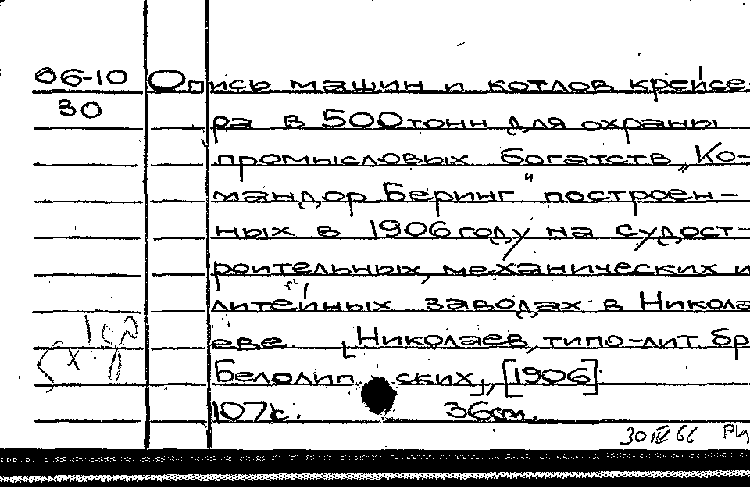 06-10 Опись машин и котлов крейсе-
30 ра в 500 тонн для охраны
промысловых богатств „Ко-
мандор Беринг" построен-
ных в 1906 году на судост-
роительных, механических и
литейных заводах в Никола
еве. [Николаев, типо-лит. бр
Белолип ских], [1906]
107с. 36см.
30 IV 66